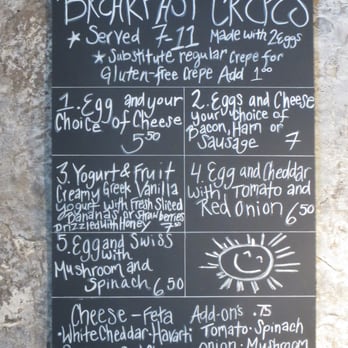 BREAKFAST CREPES
★ Served 7-11 Made with 2 Eggs
★ Substitute regular crepe for
Gluten-free crêpe Add 1.00
1. Egg and your
Choice of Cheese
5.50
2. Eggs and Cheese
your choice of
Bacon, Ham or
Sausage 7
3. Yogurt & Fruit
Creamy Greek Vanilla
Yogurt with Fresh Sliced
Bananas or Strawberries
Drizzled with Honey 7.50
4. Egg and Cheddar
with Tomato and
Red Onion 6.50
5. Egg and Swiss
with
Mushroom and
Spinach 6.50
Cheese - Feta
• White Cheddar • Havarti
Add-on's .75
Tomato • Spinach
onion • Mushroom